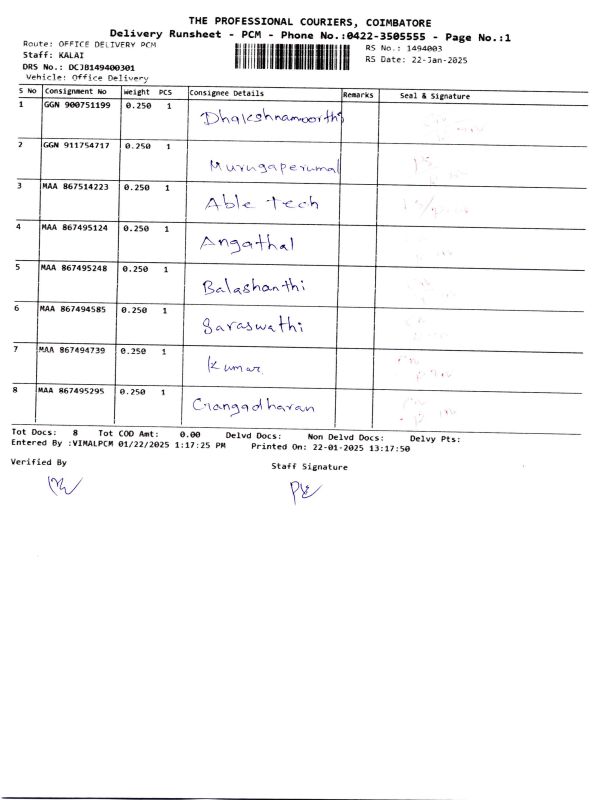 THE PROFESSIONAL COURIERS, COIMBATORE
Delivery Runsheet - PCM - Phone No.:0422-3505555 - Page No.:1
Route: OFFICE DELIVERY PCM
Staff: KALAI
DRS No.: DCJB149400301
Vehicle: Office Delivery
RS No.: 1494003
RS Date: 22-Jan-2025
S No Consignment No Weight PCS Consignee Details Remarks Seal & Signature
1 GGN 900751199 0.250 1 Dhakshnamoorthi
2 GGN 911754717 0.250 1 Murugaperumal
3 MAA 867514223 0.250 1 Able tech
4 MAA 867495124 0.250 1 Angathal
5 MAA 867495248 0.250 1 Balashanthi
6 MAA 867494585 0.250 1 Saraswathi
7 MAA 867494739 0.250 1 Kumar
8 MAA 867495295 0.250 1 Gangadharan
Tot Docs: 8 Tot COD Amt: 0.00 Delvd Docs: Non Delvd Docs: Delvy Pts:
Entered By :VIMALPCM 01/22/2025 1:17:25 PM Printed On: 22-01-2025 13:17:50
Verified By
Staff Signature